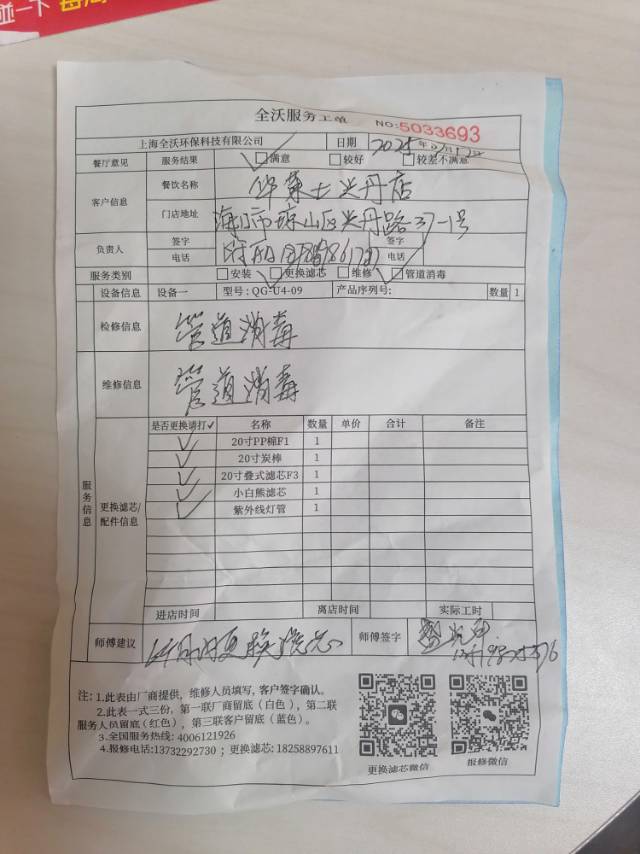 碰一下
全沃服务工单 NO:5033693
上海全沃环保科技有限公司 日期 2025年
餐厅意见 服务结果 ☑满意 □较好 □较差不满意
客户信息 餐饮名称 华莱士兴丹店
门店地址 海口市琼山区兴丹路37-1号
负责人 签字 签字
电话 电话
服务类别 □安装 ☑更换滤芯 □维修 ☑管道消毒
设备信息 设备一 型号: QG-U4-09 产品序列号: 数量 1
检修信息 管道消毒
维修信息 管道消毒
服务信息
更换滤芯/配件信息
是否更换请打✓ 名称 数量 单价 合计 备注
✓ 20寸PP棉F1 1
✓ 20寸炭棒 1
✓ 20寸叠式滤芯F3 1
✓ 小白熊滤芯 1
✓ 紫外线灯管 1
进店时间 离店时间 实际工时
师傅建议 更换滤芯 师傅签字
注: 1.此表由厂商提供，维修人员填写，客户签字确认。
2.此表一式三份，第一联厂商留底（白色），第二联
服务人员留底(红色)，第三联客户留底（蓝色）。
3.全国服务热线: 4006121926
4.报修电话:13732292730 ; 更换滤芯: 18258897611
更换滤芯微信 报修微信